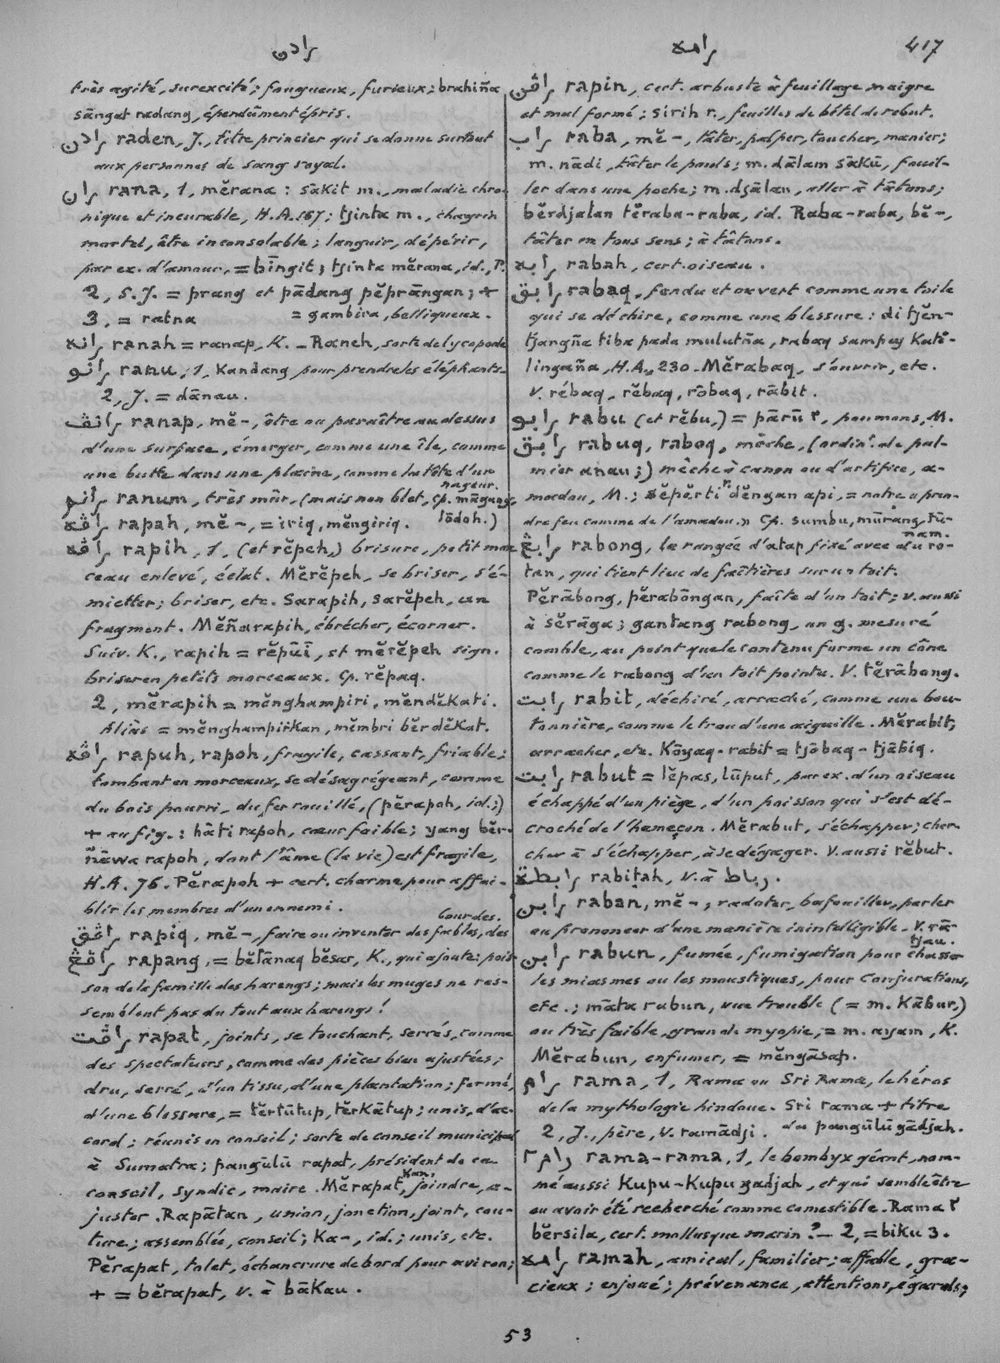 رادن
رامه
417
très agité, surexcité; fougueux, furieux; brahiña
sāngat radang, éperdûment épris.
رادن raden, J., titre princier qui se donne surtout
aux personnes de sang royal.
ران rana, 1, mĕrana: sākit m., maladie chro-
nique et incurable, H.A. 167; tjinta m., chagrin
mortel, être inconsolable; languir, dépérir,
par ex. d'amour, = bīngit; tjinta mĕrana, id., P.
2, S.J. = prang et pādang pĕprāngan; +
3, = ratna = gambira, belliqueux.
رانه ranah = ranap, K. – Raneh, sorte de lycopode
رانو ranu, 1, Kandang pour prendre les éléphants.
2, J. = dānau.
رانڤ ranap, mĕ-, être ou paraître au dessus
d'une surface, émerger, comme une île, comme
une butte dans une plaine, comme la tête d'un
nageur.
رانم ranum, très mûr, (mais non blet, cp. māgang,
lōdoh.)
راڤه rapah, mĕ-, = iriq, mĕngiriq.
راڤه rapih, 1, (et rĕpeh,) brisure, petit mor
ceau enlevé, éclat. Mĕrĕpeh, se briser, s'é-
mietter; briser, etc. Sarapih, sarĕpeh, un
fragment. Mĕñarapih, ébrécher, écorner.
Suiv. K., rapih = rĕpūī, et mĕrĕpeh sign.
briser en petits morceaux. Cp. rĕpaq.
2, mĕrapih = mĕnghampiri, mĕndĕKati.
Aliàs = mĕnghampirKan, mĕmbri bĕrdĕKat.
راڤه rapuh, rapoh, fragile, cassant, friable;
tombant en morceaux, se désagrégeant, comme
du bois pourri, du fer rouillé, (pĕrapoh, id.;)
+ au fig.: hāti rapoh, cœur faible; yang bĕr-
ñāwa rapoh, dont l'âme (la vie) est fragile,
H.A. 76. Pĕrapoh + cert. charme pour affai-
blir les membres d'un ennemi.
راڤق rapiq, mĕ-, faire ou inventer des fables, des
bourdes.
راڤڠ rapang, = bĕlānaq bĕsar, K., qui ajoute: pois
son de la famille des harengs; mais les muges ne res-
semblent pas du tout aux harengs!
راڤت rapat, joints, se touchant, serrés, comme
des spectateurs, comme des pièces bien ajustées;
dru, serré, d'un tissu, d'une plantation; fermé,
d'une blessure, = tĕrtūtup, tĕrKātup; unis, d'ac-
cord; réunis en conseil; sorte de conseil municipal
à Sumatra; pangūlū rapat, président de ce
conseil, syndic, maire. Mĕrapat,Kan, joindre, a-
juster. Rapātan, union, jonction, joint, cou-
ture; assemblée, conseil; Ka-, id.; unis, etc.
Pĕrapat, tolet, échancrure de bord pour aviron;
+ = bĕrapat, v. à bāKau.
راڤن rapin, cert. arbuste à feuillage maigre
et mal formé; sirih r., feuilles de bétel de rebut.
راب raba, mĕ-, tâter, palper, toucher, manier;
m. nādi, tâter le pouls; m. dālam sāKū, fouil-
ler dans une poche; m. djālan, aller à tâtons;
bĕrdjalan tĕraba-raba, id. Raba-raba, bĕ-,
tâter en tous sens; à tâtons.
رابه rabah, cert. oiseau.
رابق rabaq, fendu et ouvert comme une toile
qui se déchire, comme une blessure: di tjĕn-
tjangña tiba pada mulutña, rabaq sampey Kati-
lingaña, H.A., 230. Mĕrabaq, s'ouvrir, etc.
V. rébaq, rĕbaq, rōbaq, rābit.
رابو rabu (et rĕbu,) = pārū ٢, poumons, M.
رابق rabuq, raboq, mèche, (ordin.t de pal-
mier anau;) mèche à canon ou d'artifice, a-
madou, M.; sĕpĕrti r. dĕngan api, = notre « pren-
dre feu comme de l'amadou.» Cp. sumbu, mūrang, tū-
nam.
رابڠ rabong, la rangée d'atap fixé avec du ro-
tan, qui tient lieu de faîtières sur un toit.
Pĕrābong, pĕrabōngan, faîte d'un toit; v. aussi
à sĕrāga; gantang rabong, un g. mesuré
comble, au point que le contenu forme un cône
comme le rabong d'un toit pointu. V. tĕrābong.
رابت rabit, déchiré, arraché, comme une bou-
tonnière, comme le trou d'une aiguille. Mĕrabit,
arracher, etc. Kōyaq-rabit = tjōbaq-tjābiq.
رابت rabut = lĕpas, lūput, par ex. d'un oiseau
échappé d'un piège, d'un poisson qui s'est dé-
croché de l'hameçon. Mĕrabut, s'échapper; cher-
cher à s'échapper, à se dégager. V. aussi rĕbut.
رابطة rabiṭah, v. à رباط.
رابن raban, mĕ-, radoter, bafouiller, parler
ou prononcer d'une manière inintelligible. V. rā-
tjau.
رابن rabun, fumée, fumigation pour chasser
les miasmes ou les moustiques, pour conjurations,
etc.; māta rabun, vue trouble (= m. Kābur,)
ou très faible, grande myopie, = m. ayam, K.
Mĕrabun, enfumer, = mĕngāsap.
رام rama, 1, Rama ou Sri Rama, le héros
de la mythologie hindoue. Sri rama + titre
2, J., père, v. ramādji. du pangūlū gādjah.
رام٢ rama-rama, 1, le bombyx géant, nom-
mé aussi Kupu-Kupu gadjah, et qui semble être
ou avoir été recherché comme comestible. Rama ٢
bĕrsila, cert. mollusque marin? – 2, = biku 3.
رامه ramah, amical, familier; affable, gra-
cieux; enjoué; prévenance, attentions, égards;
53